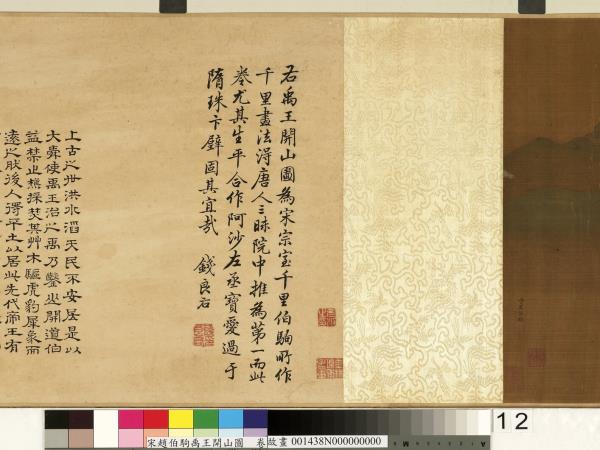 右禹王開山圖為宋宗室千里伯駒所作
千里畫法得唐人三昧院中推為第一而此
卷尤其生平合作阿沙左丞寶愛過于
隋珠卞璧固其宜哉 錢良右
上古之世洪水滔天民不安居是以
大舜使禹王治之禹乃鑿山開道伯
益禁止樵採焚其艸木驅虎豹犀象而
遠之肰後人得平土以居此先代帝王有
12
宋趙伯駒禹王開山圖 卷 故畫 001438N000000000